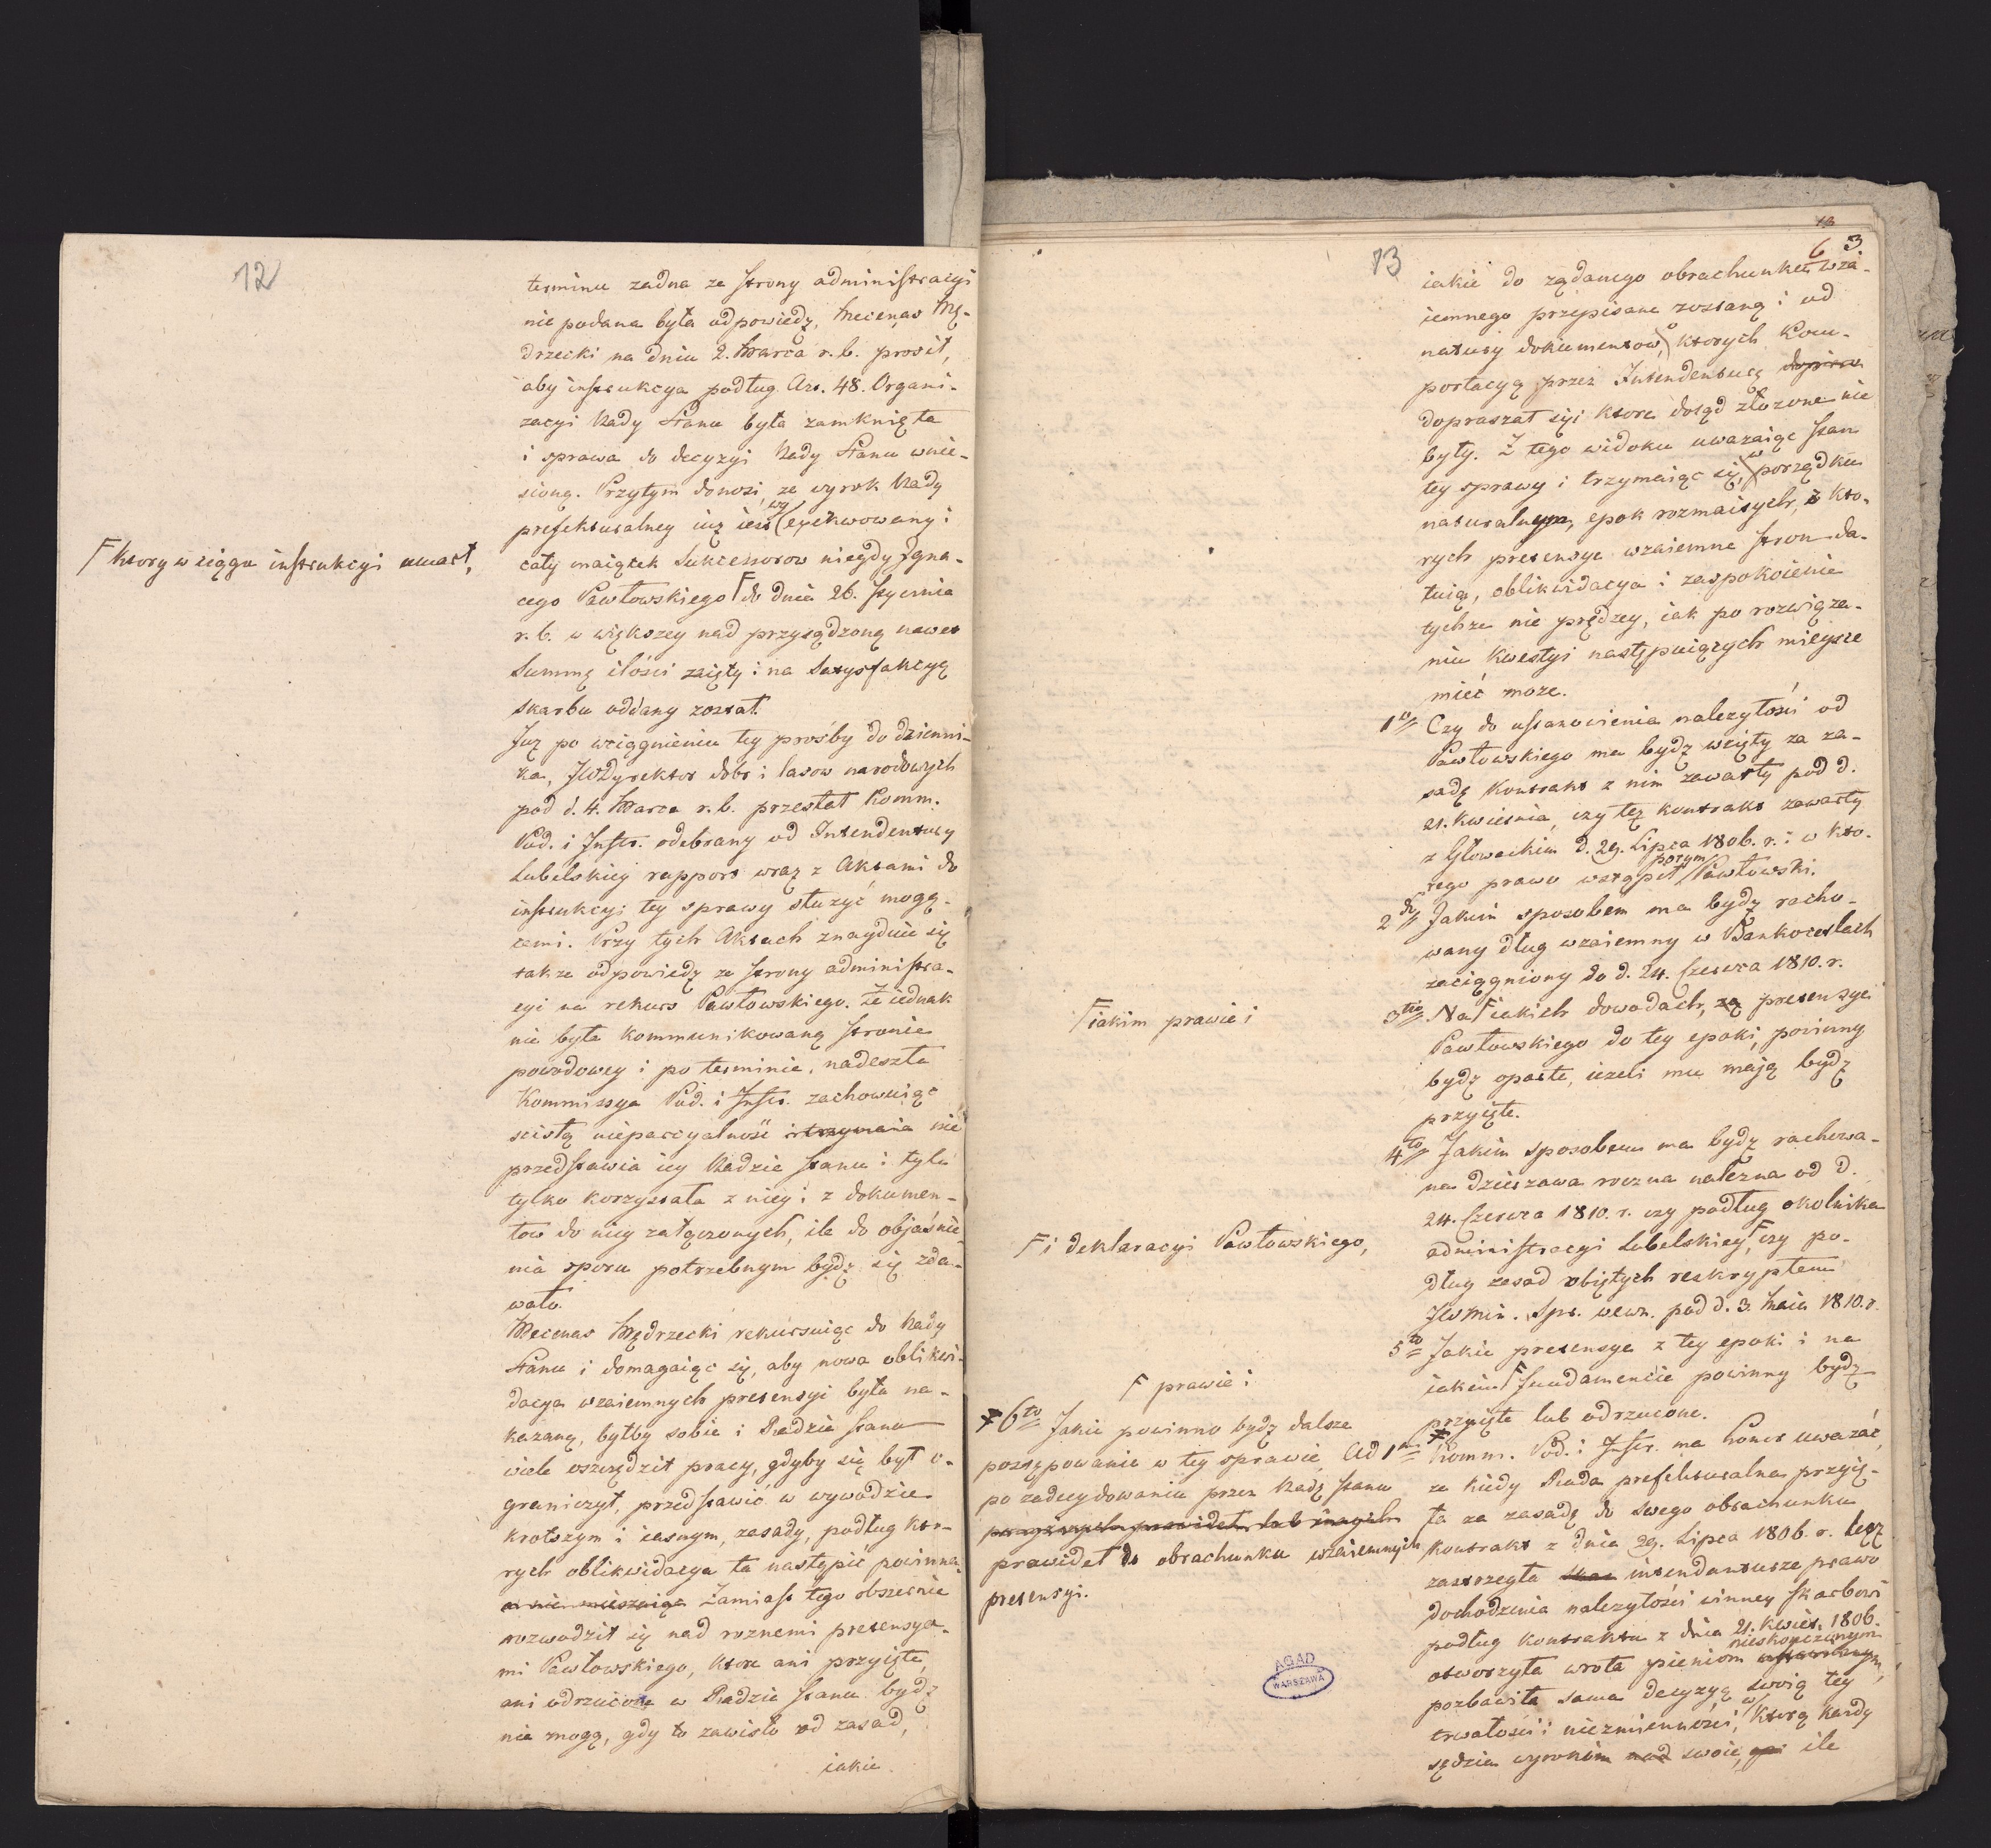 12
terminu zadna ze strony administracyi
nie podana była odpowiedz, Mecenas Mę-
drzecki na dniu 2. Marca r. b. prosił,
aby instrukcya podług Art. 48. Organi-
zacyi Rady Stanu była zamknięta
i sprawa do decyzyi Rady Stanu wnie-
sioną. Przytym donosi, ze wyrok Rady
prefekturalney iuz iest wyexekwowany i
cały maiątek Sukcessorow niegdy Igna-
cego Pawłowskiego F do dnia 26. Stycznia
F ktory w ciągu instrukcyi umarł,
r. b. w większey nad przysądzoną nawet
Summę ilości zaięty i na Satysfakcyą
skarbu oddany został.
Juz po wciągnieniu tey prośby do dzienni-
ka, JWDyrektor dobr i lasow narodowych
pod d. 4. Marca r. b. przesłał Komm.
Pod. i Instr. odebrany od Intendentury
Lubelskiey rapport wraz z Aktami do
instrukcyi tey sprawy służyć mogą-
cemi. Przy tych Aktach znayduie się
takze odpowiedz ze strony administra-
cyi na rekurs Pawłowskiego. Ze iednak
nie była kommunikowaną stronie
powodowey i po terminie, nadeszła
Kommissya Pod. i Instr. zachowuiąc
scisłą nieparcyalność nie
przedstawia iey Radzie Stanu i tyle
tylko korzystała z niey i z dokumen-
tow do niey załączonych, ile do objaśnie-
nia sporu potrzebnym bydz się zda-
wało.
Mecenas Mędrzecki rekursuiąc do Rady
Stanu i domagaiąc się, aby nowa oblikwi-
dacya wzaiemnych pretensyi była na-
kazaną, byłby sobie i Radzie Stanu
wiele oszczędził pracy, gdyby się był o-
graniczył, przedstawić w wywodzie
krotszym i iasnym, zasady, podług kto-
rych oblikwidacya ta nastąpić powinna.
Zamiast tego obszernie
rozwodził się nad roznemi pretensya-
mi Pawłowskiego, ktore ani przyięte,
ani odrzucone w Radzie Stanu bydz
nie mogą, gdy to zawisło od zasad,
iakie
13
13
6 3.
iakie do ządanego obrachunku wza-
iemnego przepisane zostaną i od
natury dokumentow, o ktorych Kom-
portacyą przez Intendenturę
dopraszał się i ktore dotąd złozone nie
były. Z tego widoku uwazaiąc stan
tey sprawy i trzymaiąc się w porządku
naturalnym, epok rozmaitych, z kto-
rych pretensye wzaiemne stron da-
tuią, oblikwidacya i zaspokoienie
tychze nie prędzey, iak po rozwiąza-
niu kwestyi następuiących mieysce
mieć moze.
1o Czy do ustanowienia nalezytości od
Pawłowskiego ma bydz wzięty za za-
sadę kontrakt z nim zawarty pod d.
21. Kwietnia, czy tez kontrakt zawarty
z Głowackim d. 29. Lipca 1806. r. i w kto-
rego prawo wstąpił potym Pawłowski.
2do Jakim sposobem ma bydz racho-
wany dług wzaiemny w Bankocetlach
zaciągniony do d. 24. Czerwca 1810. r.
3tio Na F iakich dowodach, pretensye
F iakim prawie i
Pawłowskiego do tey epoki, powinny
bydz oparte, iezeli mu maią bydz
przyięte.
4to Jakim sposobem ma bydz rachowa-
na dzierzawa roczna nalezna od d.
24. Czerwca 1810. r. czy podług okolnika
administracyi Lubelskiey, F czy po-
F i deklaracyi Pawłowskiego,
dług zasad obiętych reskryptem
JWMin. Spr. wewn. pod d. 3. Maia 1810. r.
5to Jakie pretensye z tey epoki i na
iakim F fundamencie powinny bydz
F prawie i
przyięte lub odrzucone.
6to Jakie powinno bydz dalsze
postępowanie w tey sprawie
po zadecydowaniu przez Radę Stanu
prawideł do obrachunku wzaiemnych
pretensyi.
Ad 1m Komm. Pod. i Instr. ma honor uwazać,
ze kiedy Rada prefekturalna przyię-
ła za zasadę do swego obrachunku
kontrakt z dnia 29. Lipca 1806. r. lecz
zastrzegła intendanturze prawo
dochodzenia nalezytości inney skarbowi
podług kontraktu z dnia 21. Kwiet. 1806.
otworzyła wrota pieniom nieskonczonym,
pozbawiła sama decyzyą swoią tey
trwałości i niezmienności, w ktorą kazdy
sędzia wyrokiem swoie, ile
AGAD
WARSZAWA